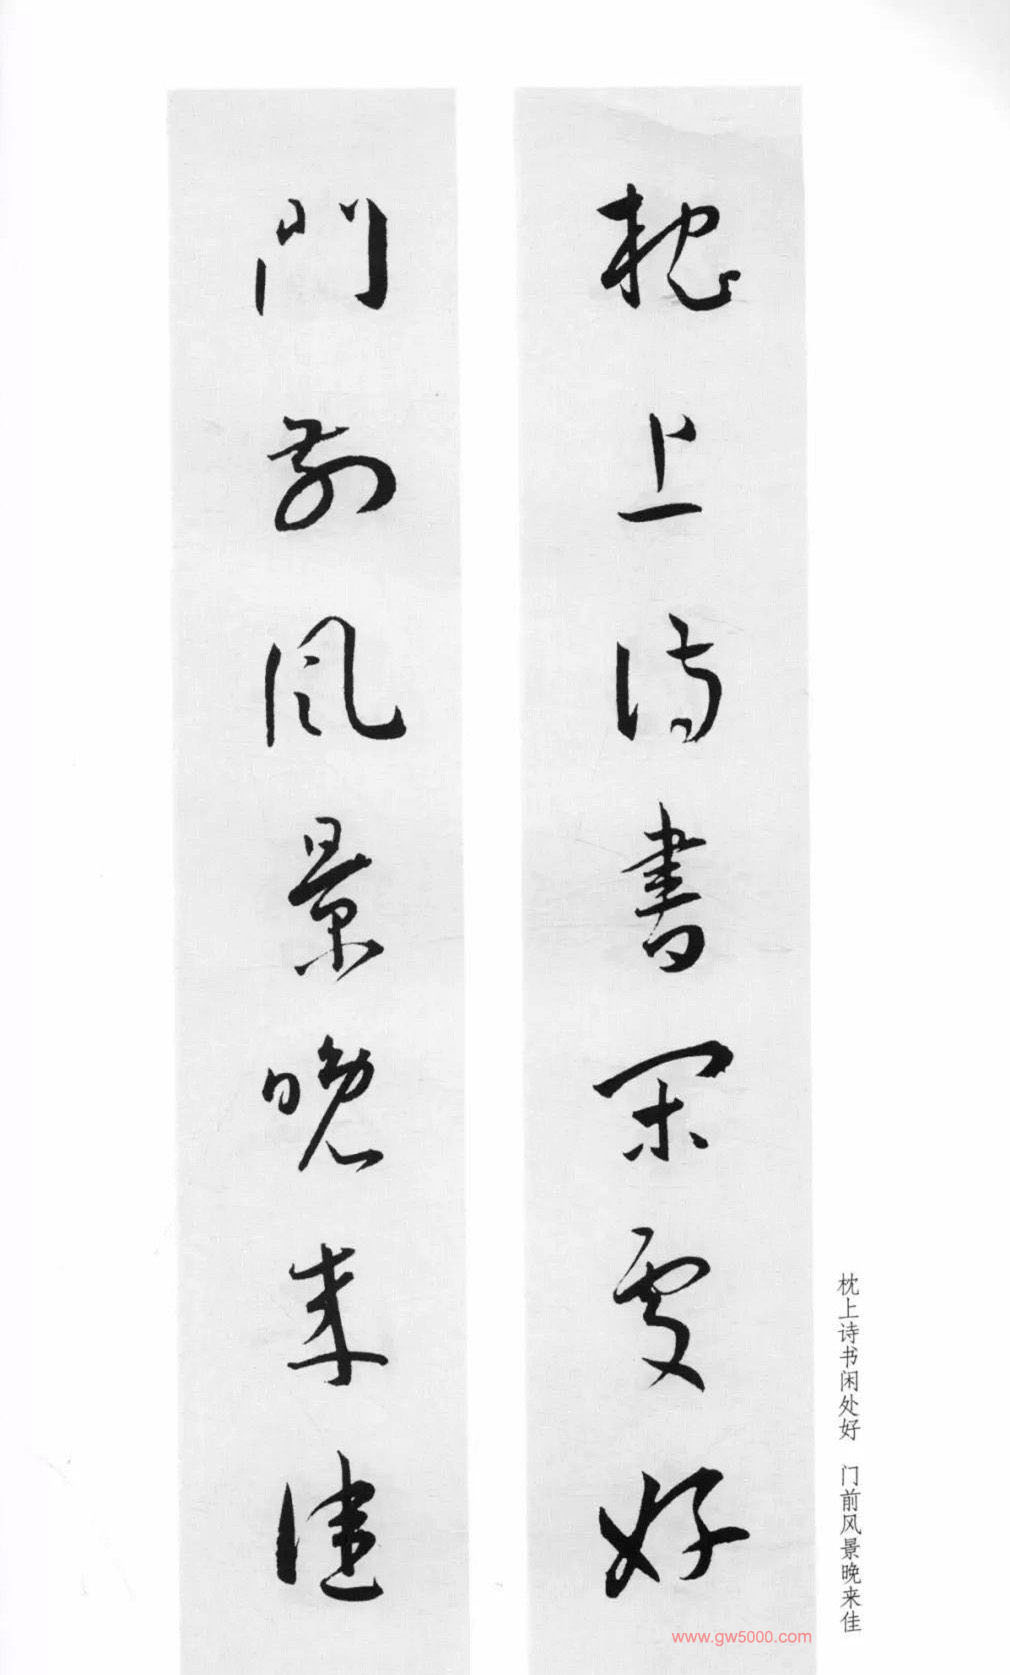 枕上诗書闲處好
門前風景晚来佳
枕上诗书闲处好 门前风景晚来佳
www.gw5000.com